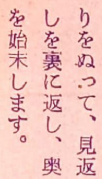 りをぬって、見返
しを裏に返し、奥
を始末します。